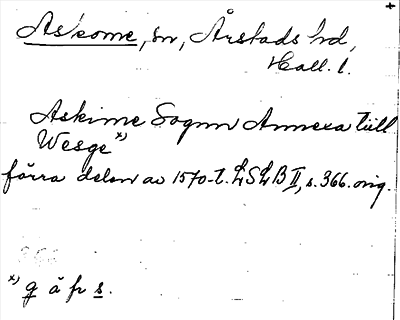 Askome, sn, Årstads hd,
Hall. l.
Askime Sognn Annexa tiill
Wesge x)
förra delen av 1570-t. LSLB II, s. 366. orig.
x) g å fr s.